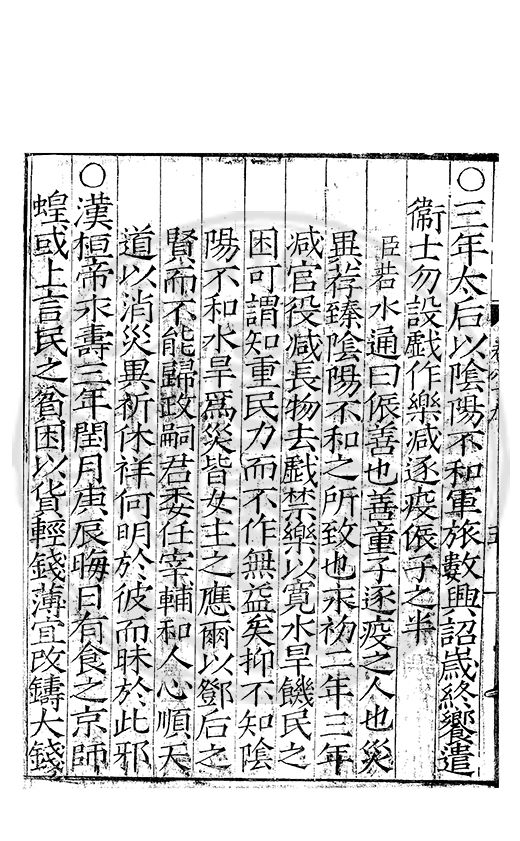 ○三年太后以陰陽不和軍旅數興詔歲終饗遣
衞士勿設戱作樂减逐疫侲子之半
臣若水通曰侲善也善童子逐疫之人也災
異荐臻陰陽不和之所致也永初二年三年
减官役减長物去戱禁樂以寛水旱饑民之
困可謂知重民力而不作無益矣抑不知陰
陽不和水旱爲災皆女主之應爾以鄧后之
賢而不能歸政嗣君委任宰輔和人心順天
道以消災異祈休祥何明於彼而昧於此邪
○漢桓帝永壽三年閏月庚辰晦日有食之京師
蝗或上言民之貧困以貨輕錢薄宜改鑄大錢